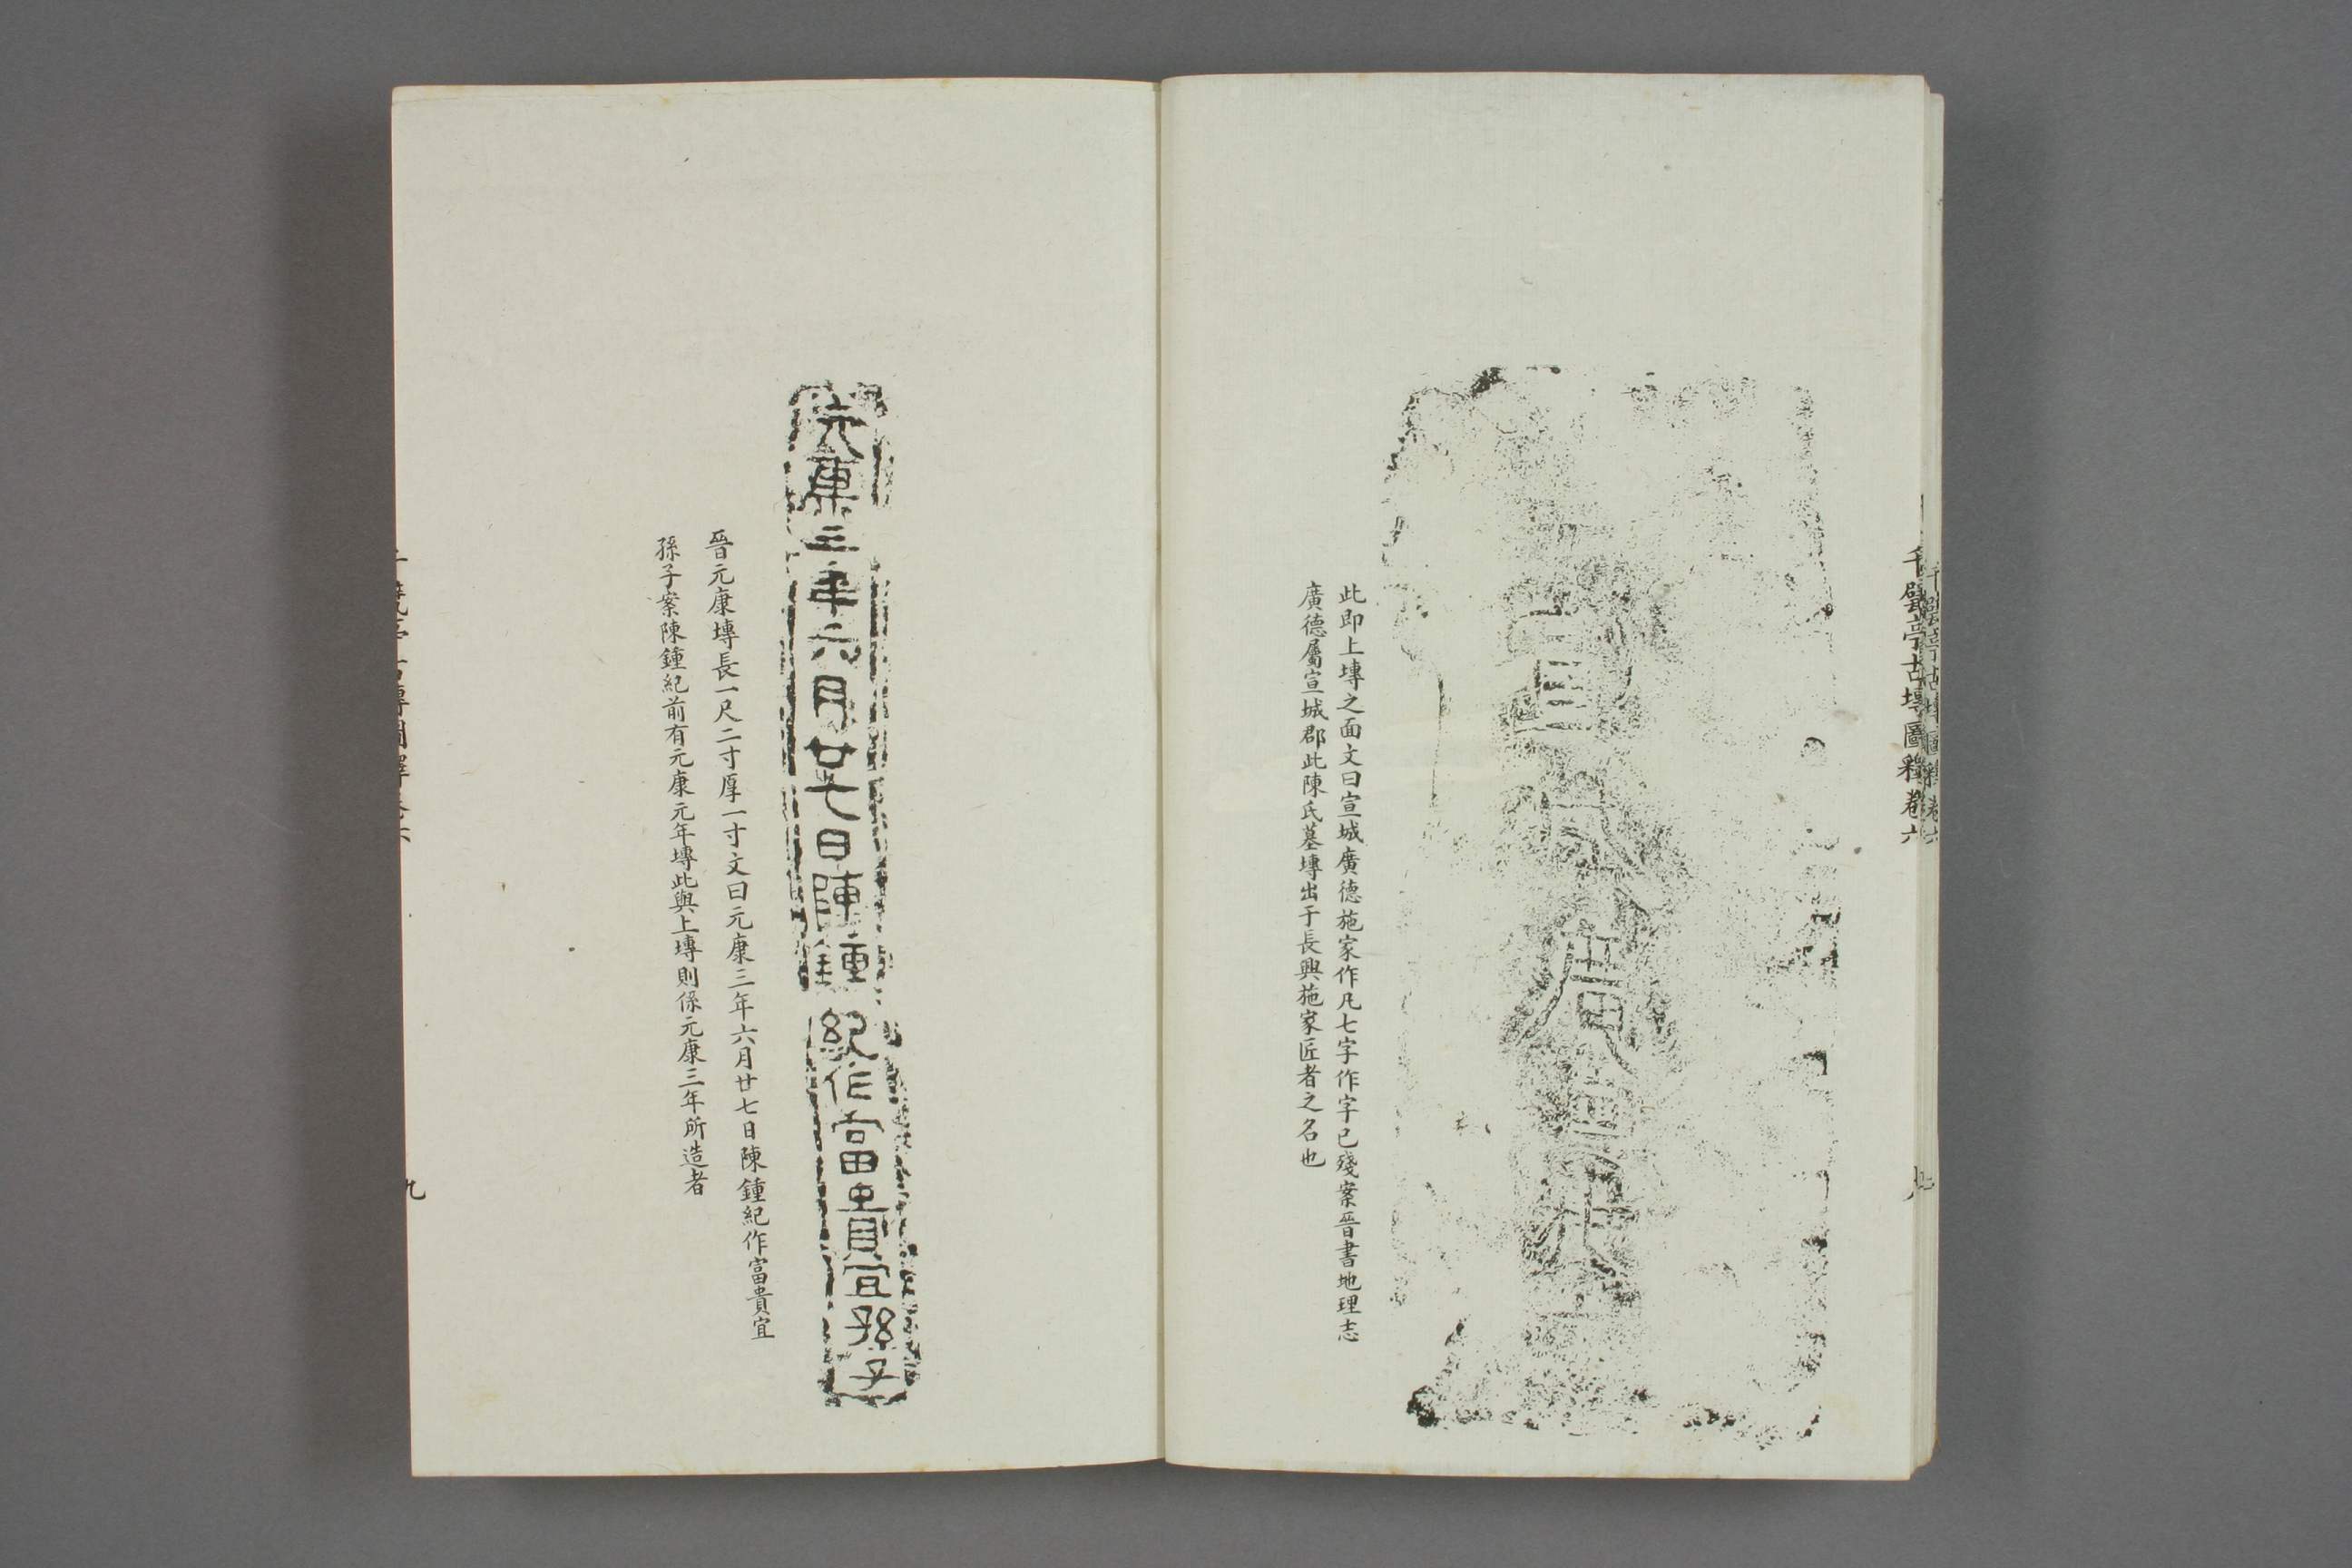 千甓亭古塼圖釋卷六
此即上塼之面文曰宣城廣德施家作凡七字作字已殘案晉書地理志
廣德屬宣城郡此陳氏墓塼出于長興施家匠者之名也
元康三年六月廿七日陳鍾紀作富貴宜孫子
晉元康塼長一尺二寸厚一寸文曰元康三年六月廿七日陳鍾紀作富貴宜
孫子案陳鍾紀前有元康元年塼此與上塼則係元康三年所造者
九